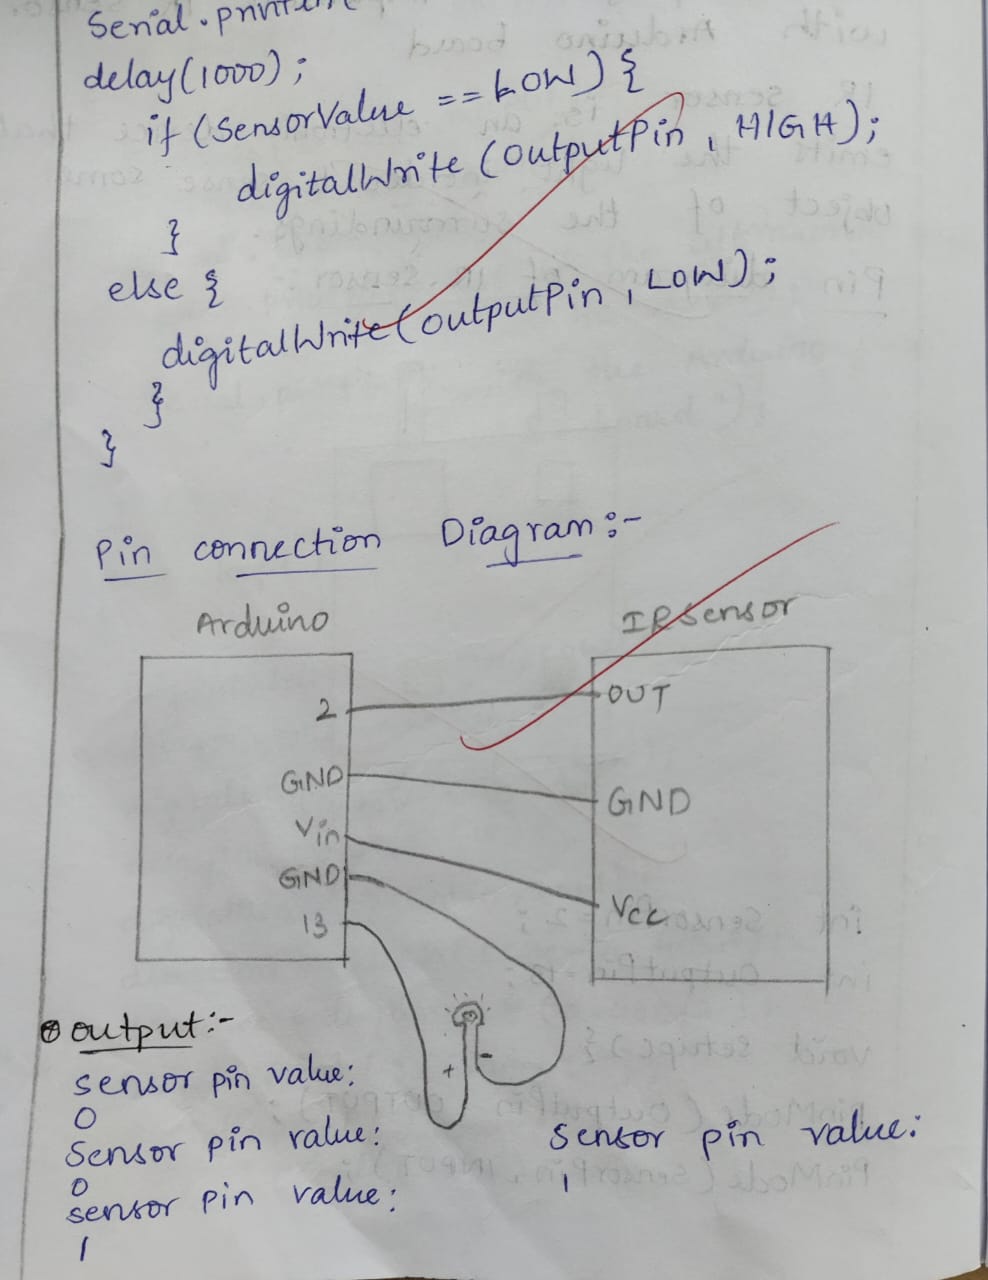 Serial.println
delay(1000);
if (SensorValue == LOW) {
digitalWrite (OutputPin, HIGH);
}
else {
digitalWrite(OutputPin, LOW);
}
}
Pin connection Diagram:-
Arduino
IRSensor
2
OUT
GND
GND
Vin
Vcc
GND
13
+
-
Output:-
sensor pin value:
0
Sensor pin value:
0
sensor pin value:
1
Sensor pin value:
1